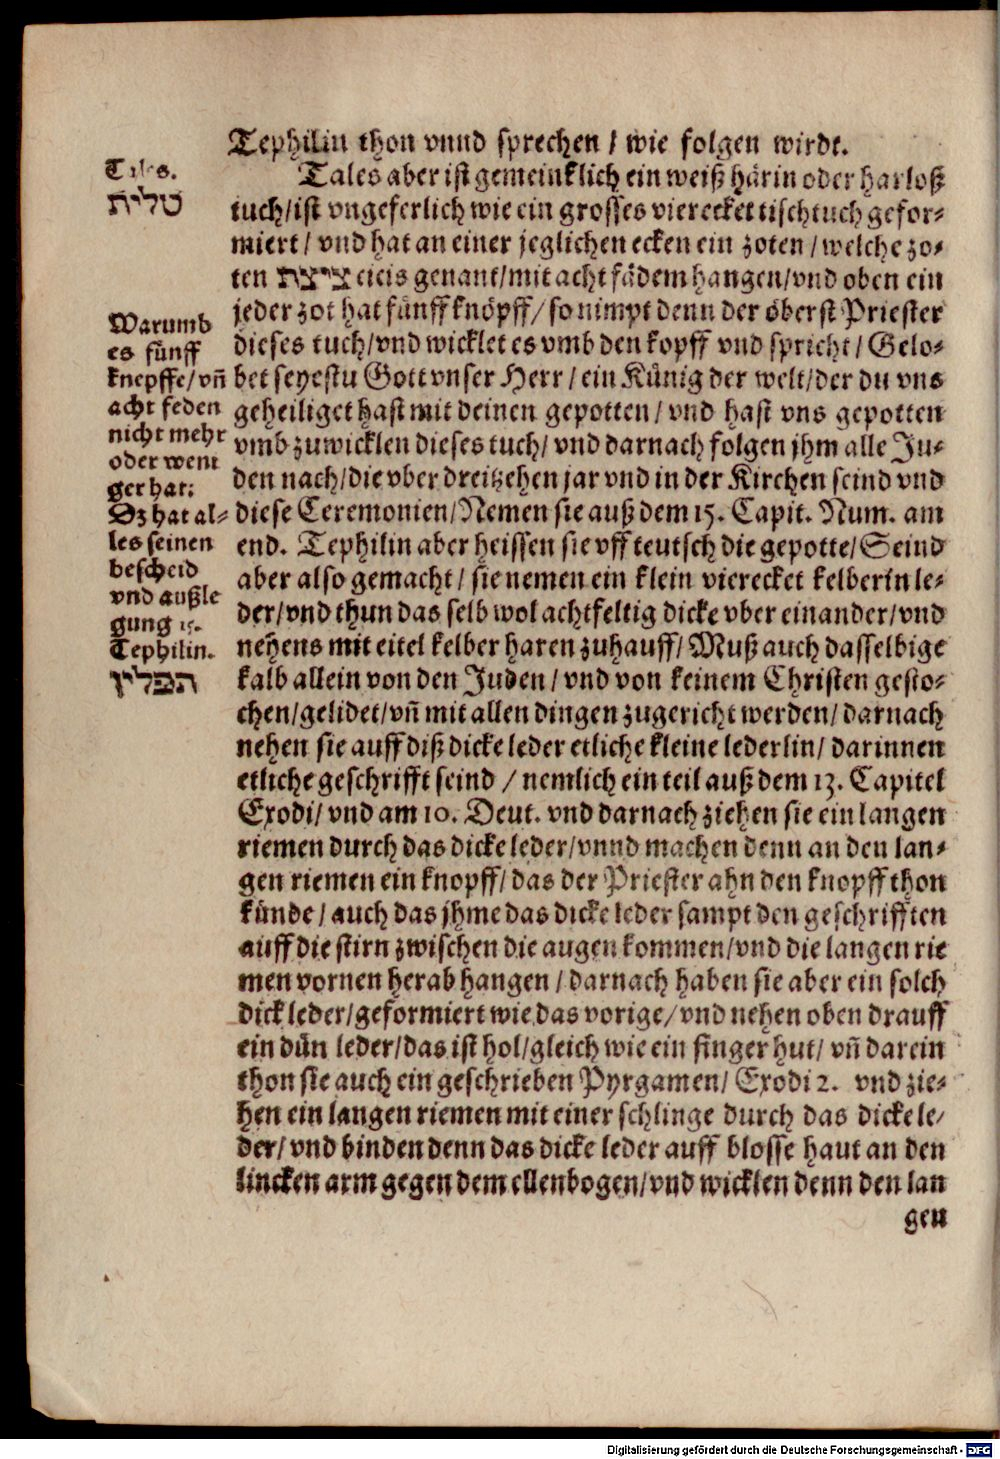 Tephilin thon vnnd sprechen / wie folgen wirdt.
Tales aber ist gemeinklich ein weiß härin oder harloß
tuch/ist vngeferlich wie ein grosses vierecket tischtuch gefor-
miert/ vnd hat an einer jeglichen ecken ein zoten/welche zo-
ten ציצת cicis genant/mit acht fädem hangen/vnd oben ein
jeder zot hat fünff knöpff/ so nimpt denn der öberst Priester
dieses tuch/vnd wicklet es vmb den kopff vnd spricht/ Gelo-
bet seyestu Gott vnser Herr/ ein Künig der welt/der du vns
geheiliget hast mit deinen gepotten/ vnd hast vns gepotten
vmb zuwicklen dieses tuch/ vnd darnach folgen jhm alle Ju-
den nach/die vber dreitzehen jar vnd in der Kirchen seind vnd
diese Ceremonien/Nemen sie auß dem 15. Capit. Num. am
end. Tephilin aber heissen sie vff teutsch die gepotte/ Seind
aber also gemacht/ sie nemen ein klein vierecket kelberin le-
der/vnd thun das selb wol achtfeltig dicke vber einander/vnd
nehens mit eitel kelber haren zuhauff/ Muß auch dasselbige
kalb allein von den Juden/ vnd von keinem Christen gesto-
chen/gelidet/vñ mit allen dingen zugericht werden/ darnach
nehen sie auff diß dicke leder etliche kleine lederlin/ darinnen
etliche geschrifft seind / nemlich ein teil auß dem 13. Capitel
Exodi/ vnd am 10. Deut. vnd darnach ziehen sie ein langen
riemen durch das dicke leder/vnnd machen denn an den lan-
gen riemen ein knopff/ das der Priester ahn den knopff thon
künde/ auch das jhme das dicke leder sampt den geschrifften
auff die stirn zwischen die augen kommen/vnd die langen rie
men vornen herab hangen / darnach haben sie aber ein solch
dick leder/geformiert wie das vorige/ vnd nehen oben drauff
ein dün leder/das ist hol/gleich wie ein finger hut/ vñ darein
thon sie auch ein geschrieben Pyrgamen/ Exodi 2. vnd zie-
hen ein langen riemen mit einer schlinge durch das dicke le/
der/ vnd binden denn das dicke leder auff blosse haut an den
lincken arm gegen dem ellenbogen/vnd wicklen denn den lan
gen
Tales.
טלית
Warumb
es fünff
knepffe/vñ
acht feden
nicht mehr
oder weni
ger hat:
Dz hat al-
les seinen
bescheid
vnd außle
gung 15.
Tephilin.
תפלין
Digitalisierung gefördert durch die Deutsche Forschungsgemeinschaft - DFG